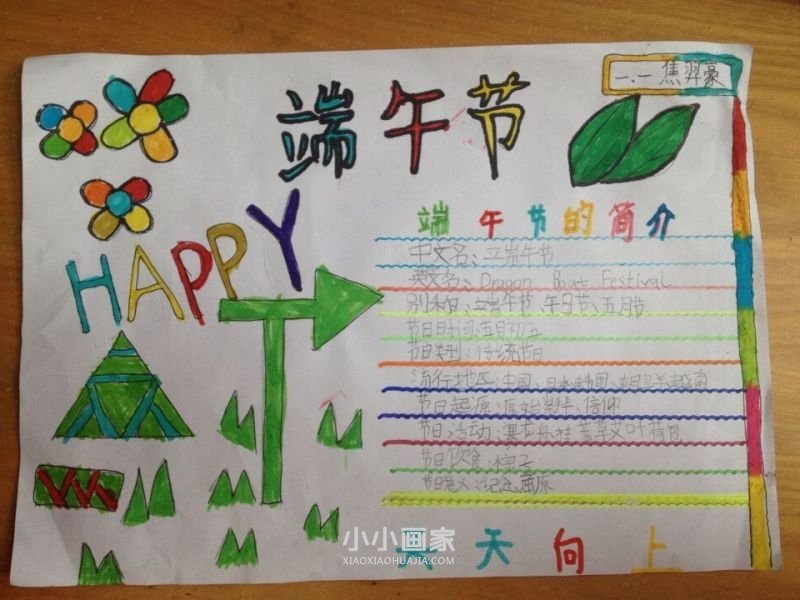 一.一 焦羿豪
端午节
HAPPY
端午节的简介
中文名:立端午节
英文名:Dragon Boat Festival
别称:立端午节、午日节、五月节
节日时间:五月初五
节日类型:传统节日
流行地区:中国、日本、韩国、越南
节日起源:原始崇拜、信仰
节日活动:赛龙舟挂菖蒲艾叶荷包
节日饮食:粽子
节日意义:纪念屈原
天天向上
小小画家
XIAOXIAOHUAJIA.COM